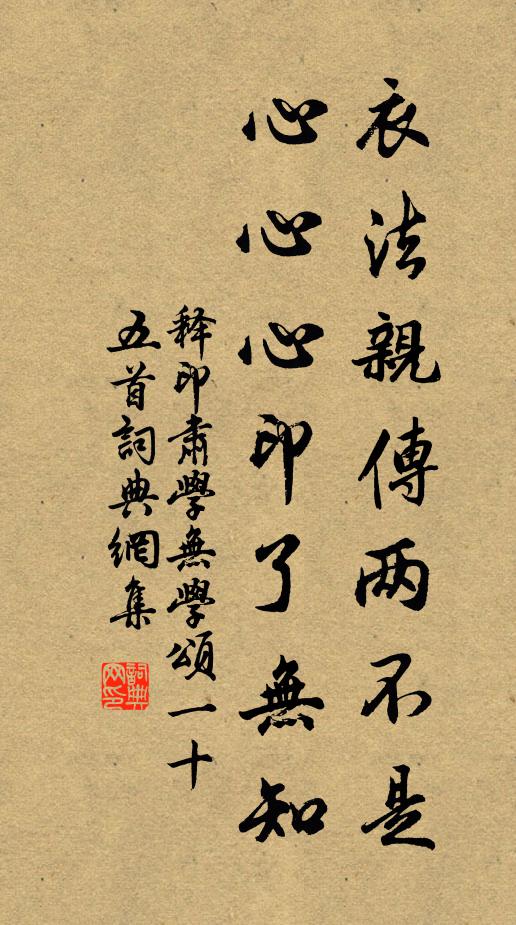 衣法親傳两不是
心心心印了無知
释印肅學無學頌一十
五首詞典網集
詞典網印